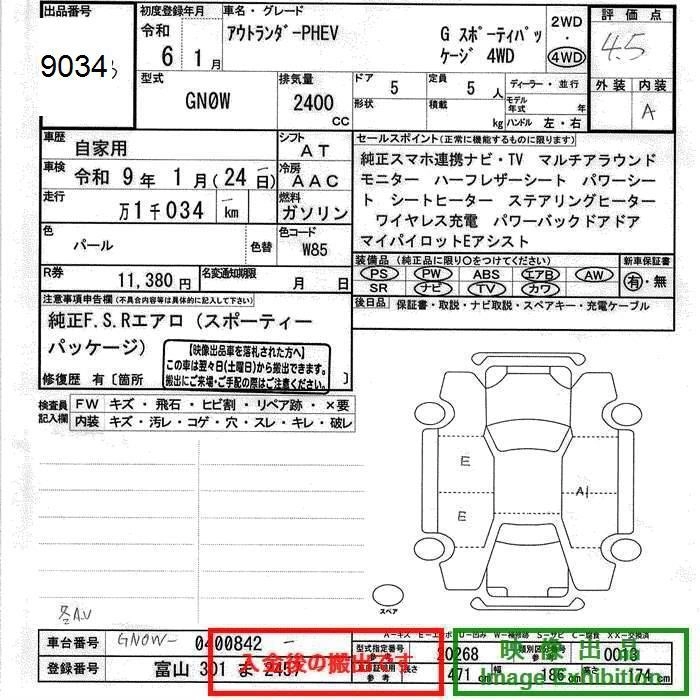 出品番号
9034
初度登録年月
令和 6 1月
車名・グレード
アウトランダーPHEV
G スポーティパッケージ 4WD
2WD
・
4WD
評価点
4.5
外装 内装
A
型式
GN0W
排気量
2400 CC
ドア 5
定員 5 人
形状
積載 kg
ディーラー・並行
モデル年式 年
ハンドル 左・右
車歴
自家用
シフト
AT
車検
令和 9年 1月(24 日)
冷房
AAC
走行
万1千034 km
燃料
ガソリン
色
パール
色替
色コード
W85
R券
11,380円
名変通知期限
月 日
セールスポイント(正常に機能するものに限ります)
純正スマホ連携ナビ・TV マルチアラウンド
モニター ハーフレザーシート パワーシー
ト シートヒーター ステアリングヒーター
ワイヤレス充電 パワーバックドアドア
マイパイロットEアシスト
装備品(純正品に限り○をつけてください)
PS PW ABS エアB AW
SR ナビ TV カワ
新車保証書
有・無
後日品 保証書・取説・ナビ取説・スペアキー・充電ケーブル
注意事項申告欄(不具合内容等は具体的に記入して下さい)
純正F.S.Rエアロ(スポーティー
パッケージ)
【映像出品車を落札された方へ】
この車は翌々日(土曜日)から搬出できます。
搬出にご来場・ご手配の際はご注意ください。
修復歴 有〔箇所 〕
検査員記入欄
FW キズ・飛石・ヒビ割・リペア跡・×要
内装 キズ・汚レ・コゲ・穴・スレ・キレ・破レ
E
E
A1
スペア
A.U
車台番号 GN0W- 0400842
登録番号 富山 301 ま 2457
入金後の搬出です
A-キズ E-エクボ U-凹み W-補修跡 S-サビ C-腐食 XX-交換済
型式指定番号 20268
類別区分番号 0013
471 cm 幅 186 cm 高さ 174 cm
映像出品
Image Exhibition